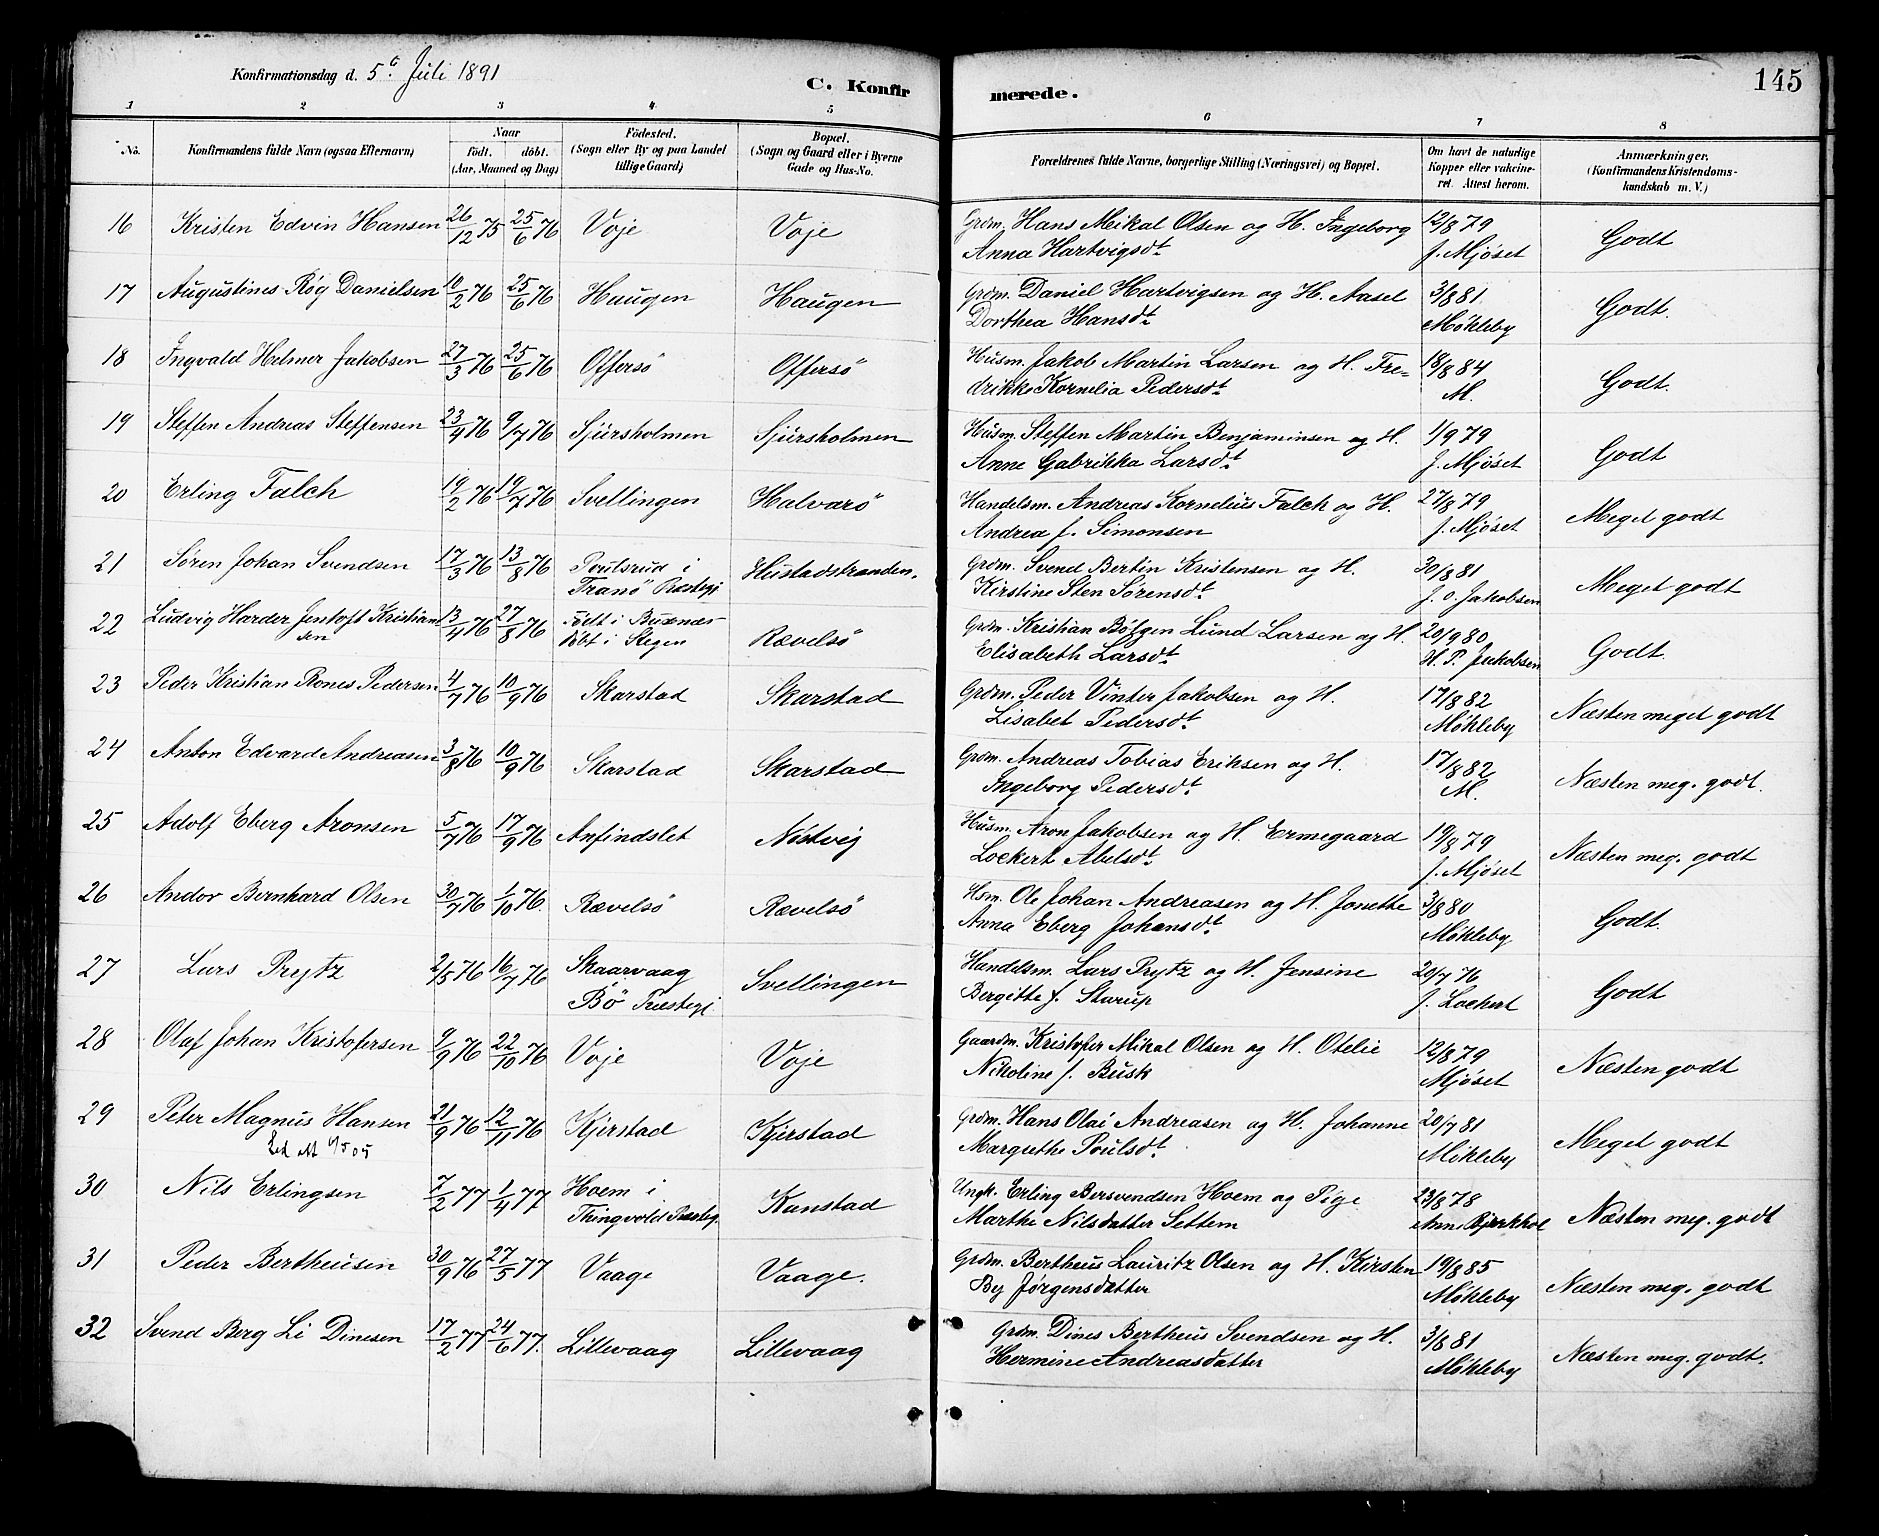 Konfirmationsdag d. 5te Juli 1891
C. Konfirmerede.
145
1 2 3 4 5 6 7 8
No.
Konfirmandens fulde Navn (ogsaa Efternavn)
Naar
födt. döbt.
(Aar, Maaned og Dag)
Födested.
(Sogn eller By og paa Landet
tillige Gaard)
Bopæl.
(Sogn og Gaard eller i Byerne
Gade og Hus-No.
Forældrenes fulde Navne, borgerlige Stilling (Næringsvei) og Bopæl.
Om havt de naturlige
Kopper eller vakcine-
ret. Attest herom.
Anmærkninger.
(Konfirmandens Kristendoms-
kundskab m. V.)
16 Kristen Edvin Hansen 26/12 75 25/6 76 Voje Voje Grdm. Hans Mikal Olsen og H. Ingeborg 12/8 79 Godt
Anna Hartvigsdt. J. Mjöset
17 Augustines Røg Danielsen 10/2 76 25/6 76 Haugen Haugen Grdm. Daniel Hartvigsen og H. Aasel 3/8 81. Godt.
Dorthea Hansdt. Møkleby
18 Ingvald Helmer Jakobsen 27/3 76 25/6 76 Offersö Offersö Husm. Jakob Martin Larsen og H. Fre- 18/8 84 Godt.
drikke Kornelia Pedersdt. M.
19 Steffen Andreas Steffensen 23/4 76 9/7 76 Sjursholmen Sjursholmen Husm. Steffen Martin Benjaminsen og H. 1/9 79 Godt
Anne Gabrikka Larsdt. J. Mjöset
20 Erling Falch 19/2 76 19/7 76 Svellingen Halvarö Handelsm. Andreas Kornelius Falch og H. 27/8 79 Meget godt
Andrea f. Simonsen J. Mjöset
21 Søren Johan Svendsen 17/3 76 13/8 76 Poulsrud i Hustadstranden. Grdm. Svend Bertin Kristensen og H. 30/8 81 Meget godt
Tranö Præstegj. Kirstine Sten Sørensdt. J. O. Jakobsen
22 Ludvig Harder Jentoft Kristian- 13/4 76 27/8 76 Födt i Buxnæs Rævelsö Grdm. Kristian Lund Larsen og H. 20/9 80 Godt.
sen döbt i Stegen Elisabeth Larsdt. H. P. Jakobsen
23 Peder Kristian Rones Pedersen 4/7 76 10/9 76 Skarstad Skarstad Grdm. Peder Vinter Jakobsen og H. 17/8 82 Næsten meget godt
Lisabet Pedersdt. Møkleby
24 Anton Edvard Andreasen 3/8 76 10/9 76 Skarstad Skarstad Grdm. Andreas Tobias Eriksen og H. 17/8 82 Næsten meg. godt.
Ingeborg Pedersdt. M.
25 Adolf Eberg Aronsen 5/7 76 17/9 76 Anfindslet Nöstvig Husm. Aron Jakobsen og H. Ermegaard 19/8 79 Næsten meg. godt
Lockert Abelsdt. J. Mjöset
26 Andor Bernhard Olsen 30/7 76 1/10 76. Rævelsö Rævelsö Hsm. Ole Johan Andreasen og H. Jonette 3/8 80 Godt.
Anna Eberg Johansdt. Møkleby
27 Lars Prytz 2/5 76 16/7 76 Skaarvaag Svellingen Handelsm. Lars Prytz og H. Jensine 20/7 76 Godt
Bö Præstegj. Bergitte f. Starup J. Lockert
28 Olaf Johan Kristofersen 9/9 76 22/10 76 Voje Voje Gaardm. Kristofer Mikal Olsen og H. Otelie 12/8 79 Næsten godt
Nikoline f. Busk Mjöset
29 Peter Magnus Hansen 21/9 76 12/11 76 Kjerstad Kjerstad Grdm. Hans Olai Andreasen og H. Johanne 20/7 81 Meget godt
Margrethe Poulsdt. Møkleby
30 Nils Erlingsen 7/2 77 1/4 77 Hoem i Kanstad Ungk. Erling Bersvendsen Hoem og Pige 23/8 78 Næsten meg. godt
Thingvold Præstegj. Marthe Nilsdatter Settem
31 Peder Bertheusen 30/9 76 27/5 77 Vaage Vaage. Grdm. Bertheus Lauritz Olsen og H. Kirsten 19/8 85 Næsten meg. godt
By Jørgensdatter Møkleby
32 Svend Berg Li Dinesen 17/2 77 24/6 77. Lillevaag Lillevaag Grdm. Dines Bertheus Svendsen og H. 3/8 81 Næsten meg. godt.
Hermine Andreasdatter Møkleby